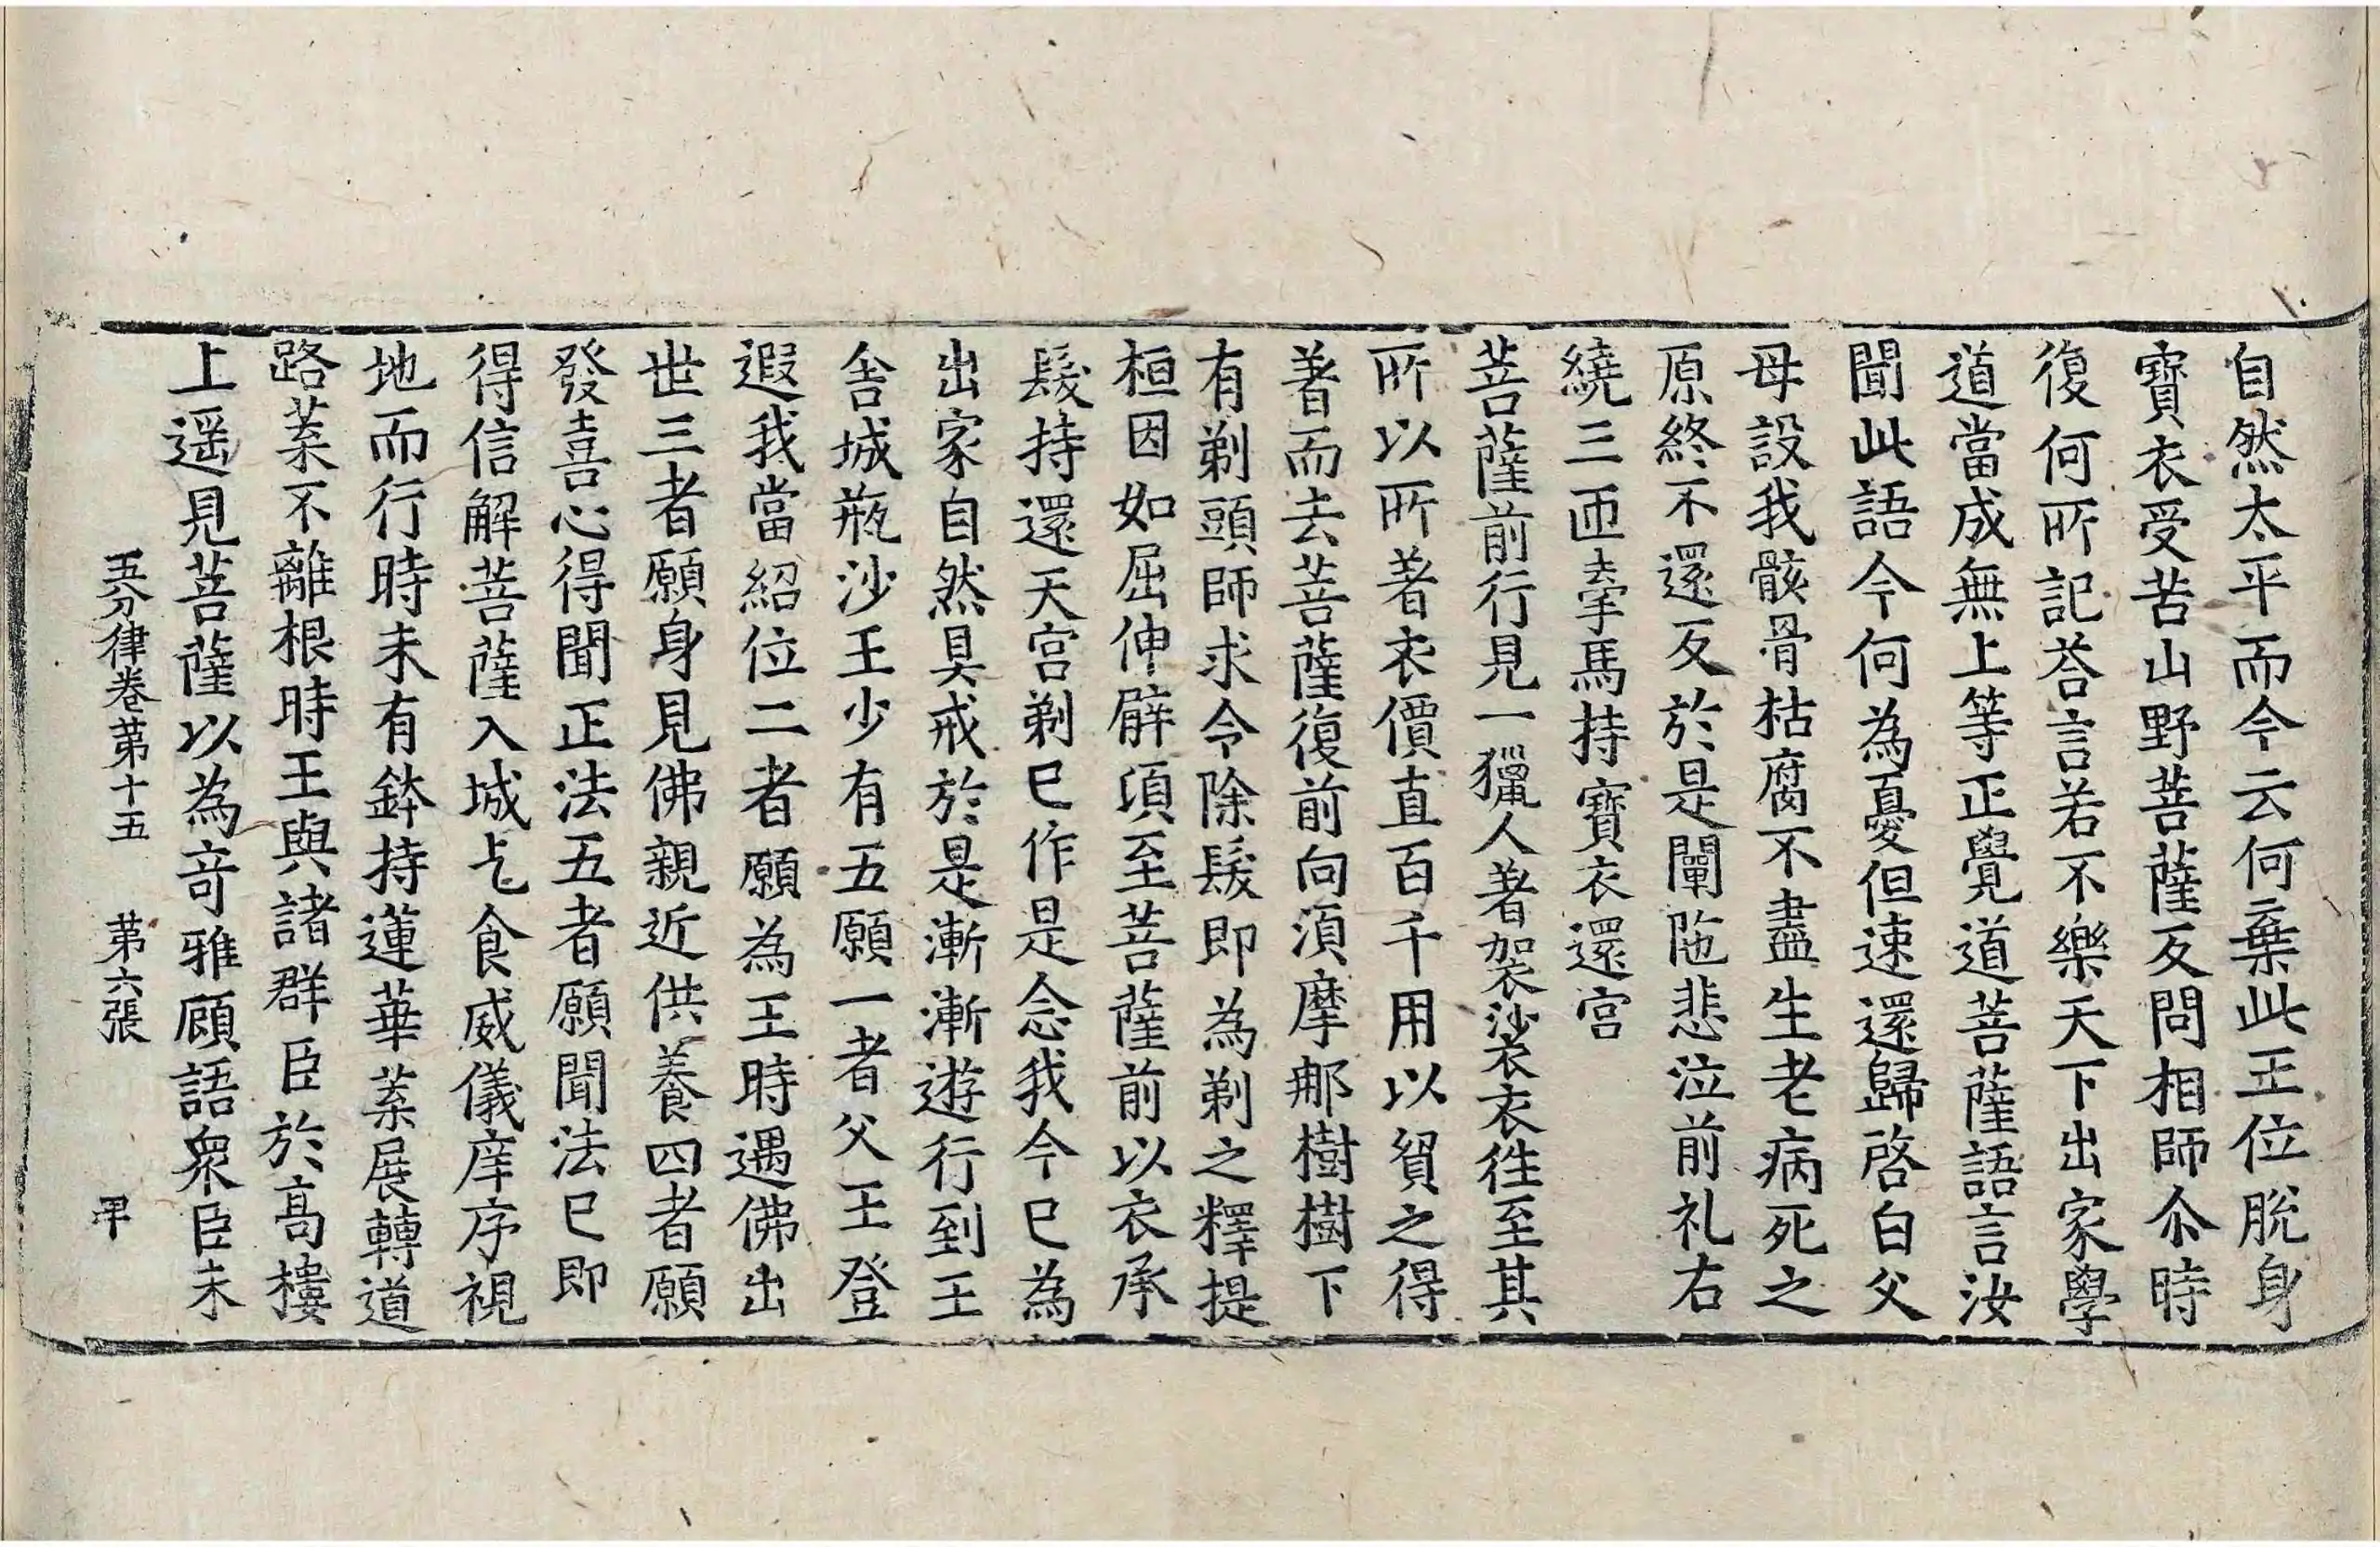 自然太平而今云何棄此王位脫身
寶衣受苦山野菩薩反問相師尒時
復何所記荅言若不樂天下出家學
道當成無上等正覺道菩薩語言汝
聞此語今何為憂但速還歸啓白父
母設我骸骨枯腐不盡生老病死之
原終不還反於是闡陁悲泣前礼右
繞三匝牽馬持寶衣還宮
菩薩前行見一獵人著袈裟衣徃至其
所以所著衣價直百千用以貿之得
著而去菩薩復前向湏摩那樹樹下
有剃頭師求令除髮即為剃之釋提
桓因如屈伸臂頃至菩薩前以衣承
髮持還天宮剃已作是念我今已為
出家自然具戒於是漸漸遊行到王
舍城瓶沙王少有五願一者父王登
遐我當紹位二者願為王時遇佛出
世三者願身見佛親近供養四者願
發喜心得聞正法五者願聞法已即
得信解菩薩入城乞食威儀庠序視
地而行時未有鉢持蓮華葉展轉道
路葉不離根時王與諸群臣於髙樓
上遥見菩薩以為竒雅顧語衆臣未
五分律卷苐十五 苐六張 甲